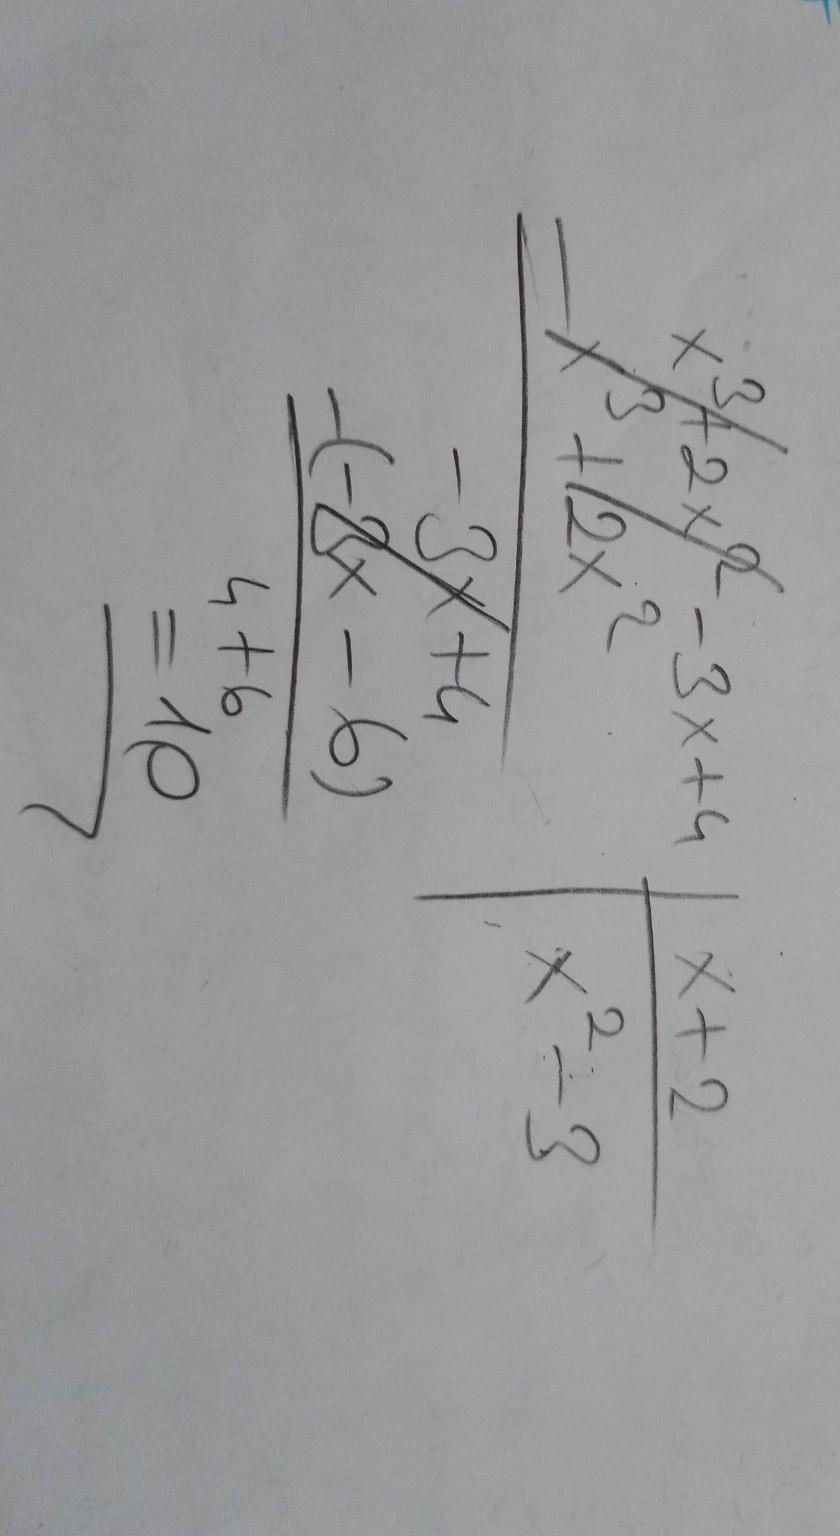 x³ + 2x² - 3x + 4 | x + 2
- x³ + 2x² | x² - 3
- 3x + 4
- (- 3x - 6)
4 + 6
= 10